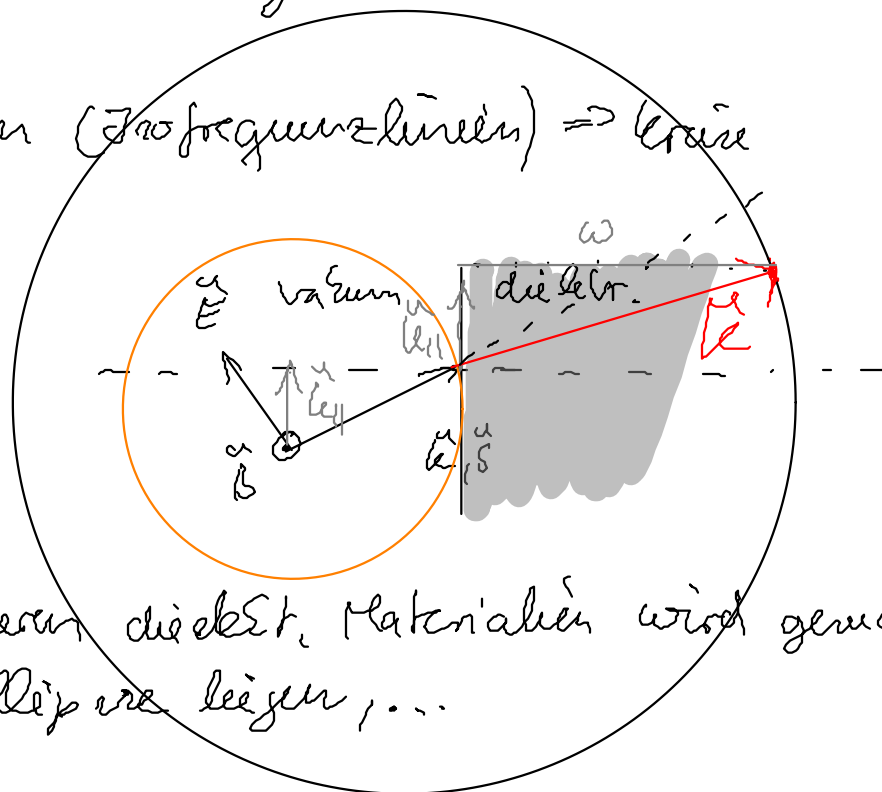 (Isofrequenzlinien) => Kreise
ω
E vakuum k|| dielektr. k
k||
B k, S
dielekt. Materialien wird
liegen, ...